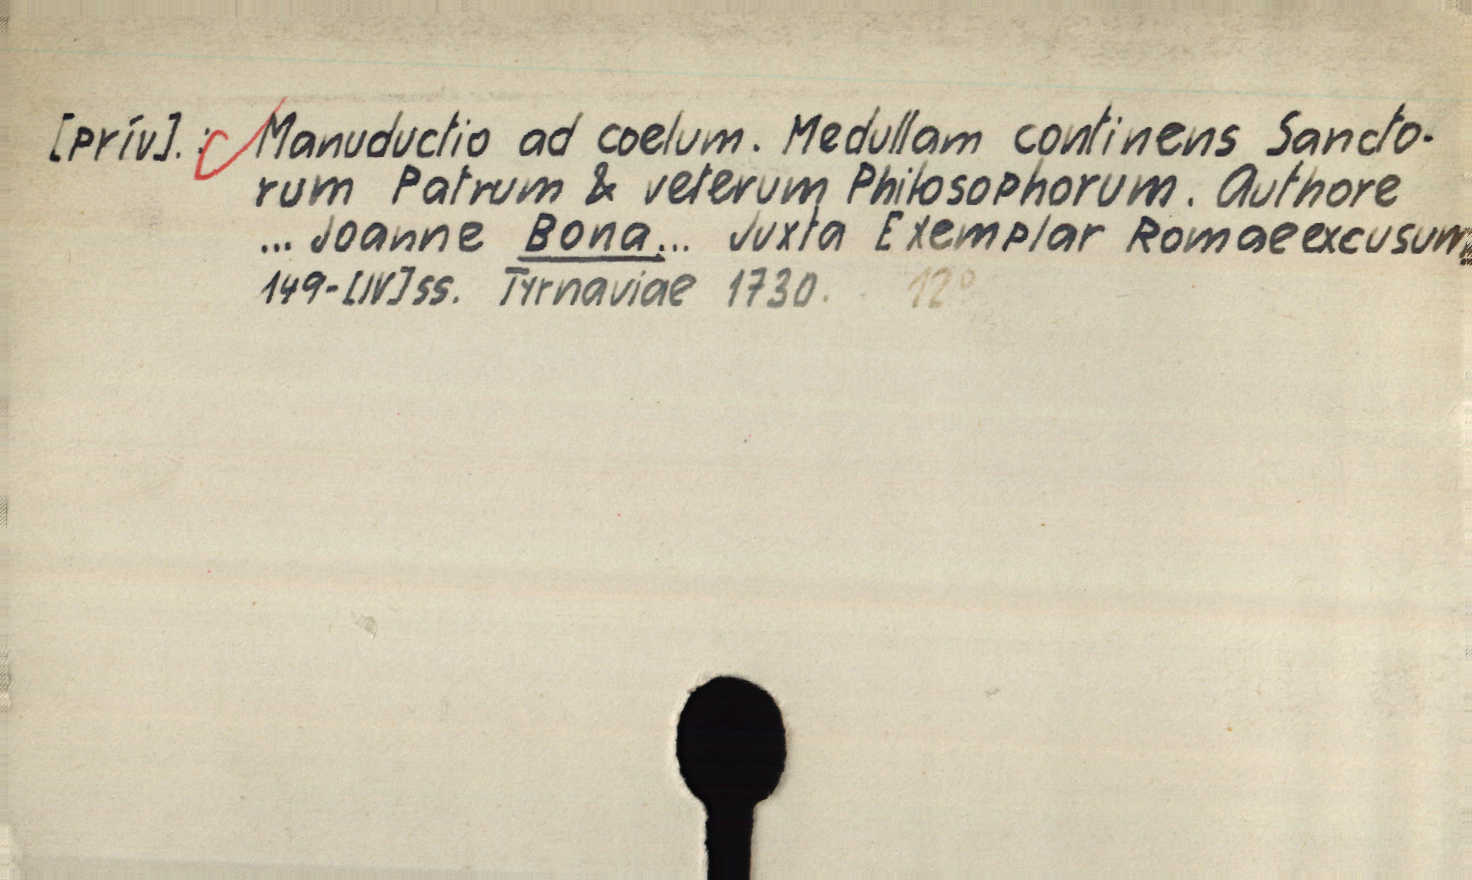 [Prív]. : Manuductio ad coelum. Medullam continens Sancto-
rum Patrum & veterum Philosophorum. Authore
... Joanne Bona... Juxta Exemplar Romae excusum,
149-[IV] ss. Tyrnaviae 1730. 12º